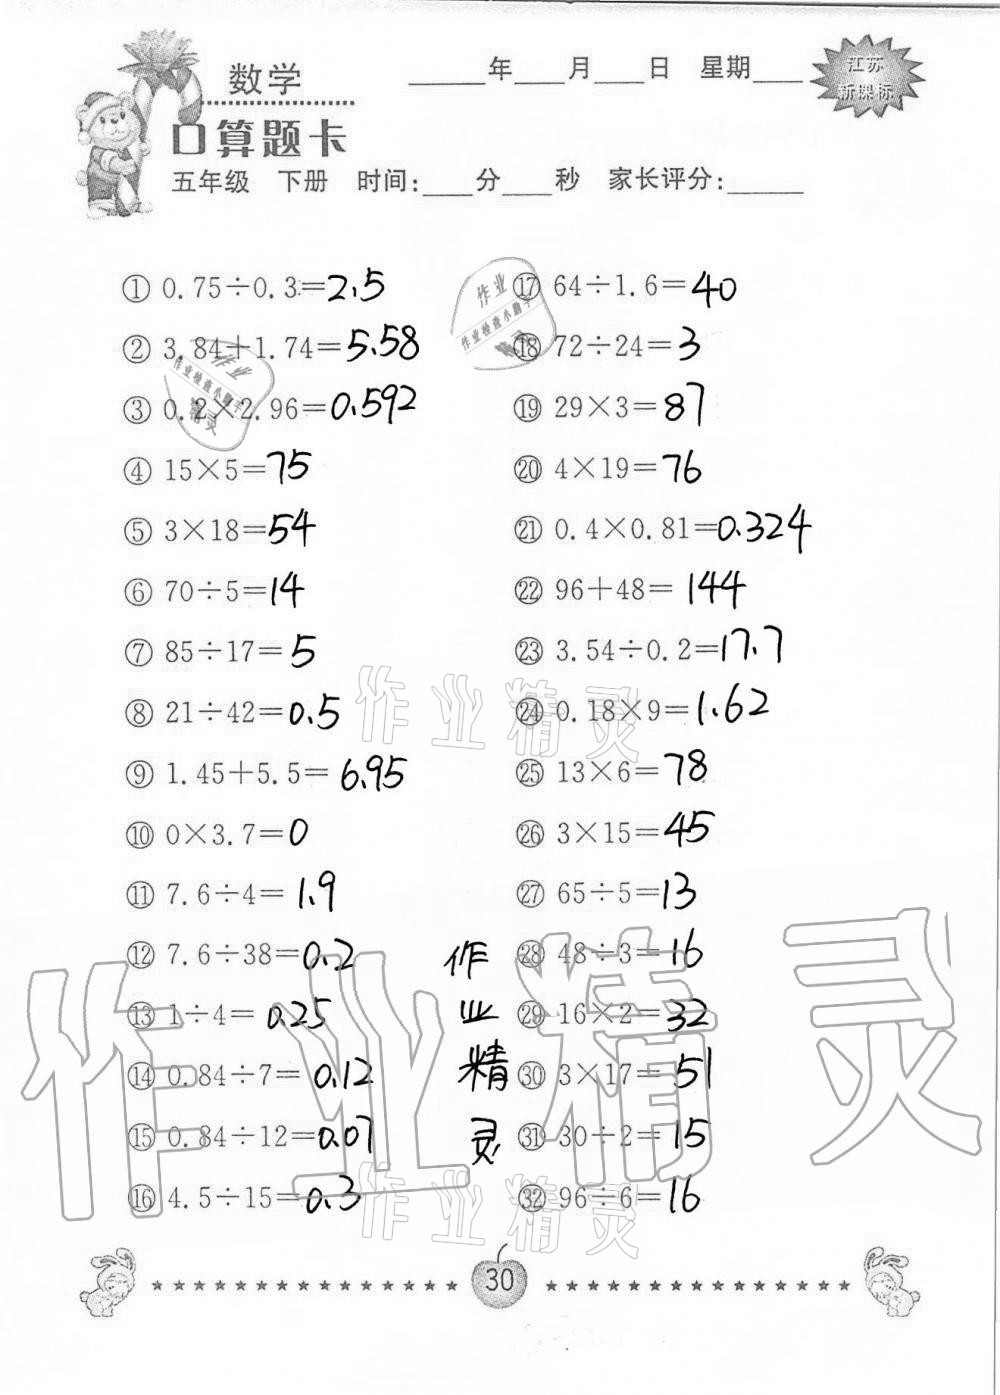 数学
口算题卡
____年____月____日 星期____
江苏
新课标
五年级 下册 时间:____分____秒 家长评分:______
① 0.75÷0.3=2.5
② 3.84+1.74=5.58
③ 0.2×2.96=0.592
④ 15×5=75
⑤ 3×18=54
⑥ 70÷5=14
⑦ 85÷17=5
⑧ 21÷42=0.5
⑨ 1.45+5.5=6.95
⑩ 0×3.7=0
⑪ 7.6÷4=1.9
⑫ 7.6÷38=0.2
⑬ 1÷4=0.25
⑭ 0.84÷7=0.12
⑮ 0.84÷12=0.07
⑯ 4.5÷15=0.3
⑰ 64÷1.6=40
⑱ 72÷24=3
⑲ 29×3=87
⑳ 4×19=76
㉑ 0.4×0.81=0.324
㉒ 96+48=144
㉓ 3.54÷0.2=17.7
㉔ 0.18×9=1.62
㉕ 13×6=78
㉖ 3×15=45
㉗ 65÷5=13
㉘ 48÷3=16
㉙ 16×2=32
㉚ 3×17=51
㉛ 30÷2=15
㉜ 96÷6=16
作
业
精
灵
作业
作业检查小助手
精灵
作业
作业检查小助手
精灵
作业精灵
作业精灵
作业精灵
30